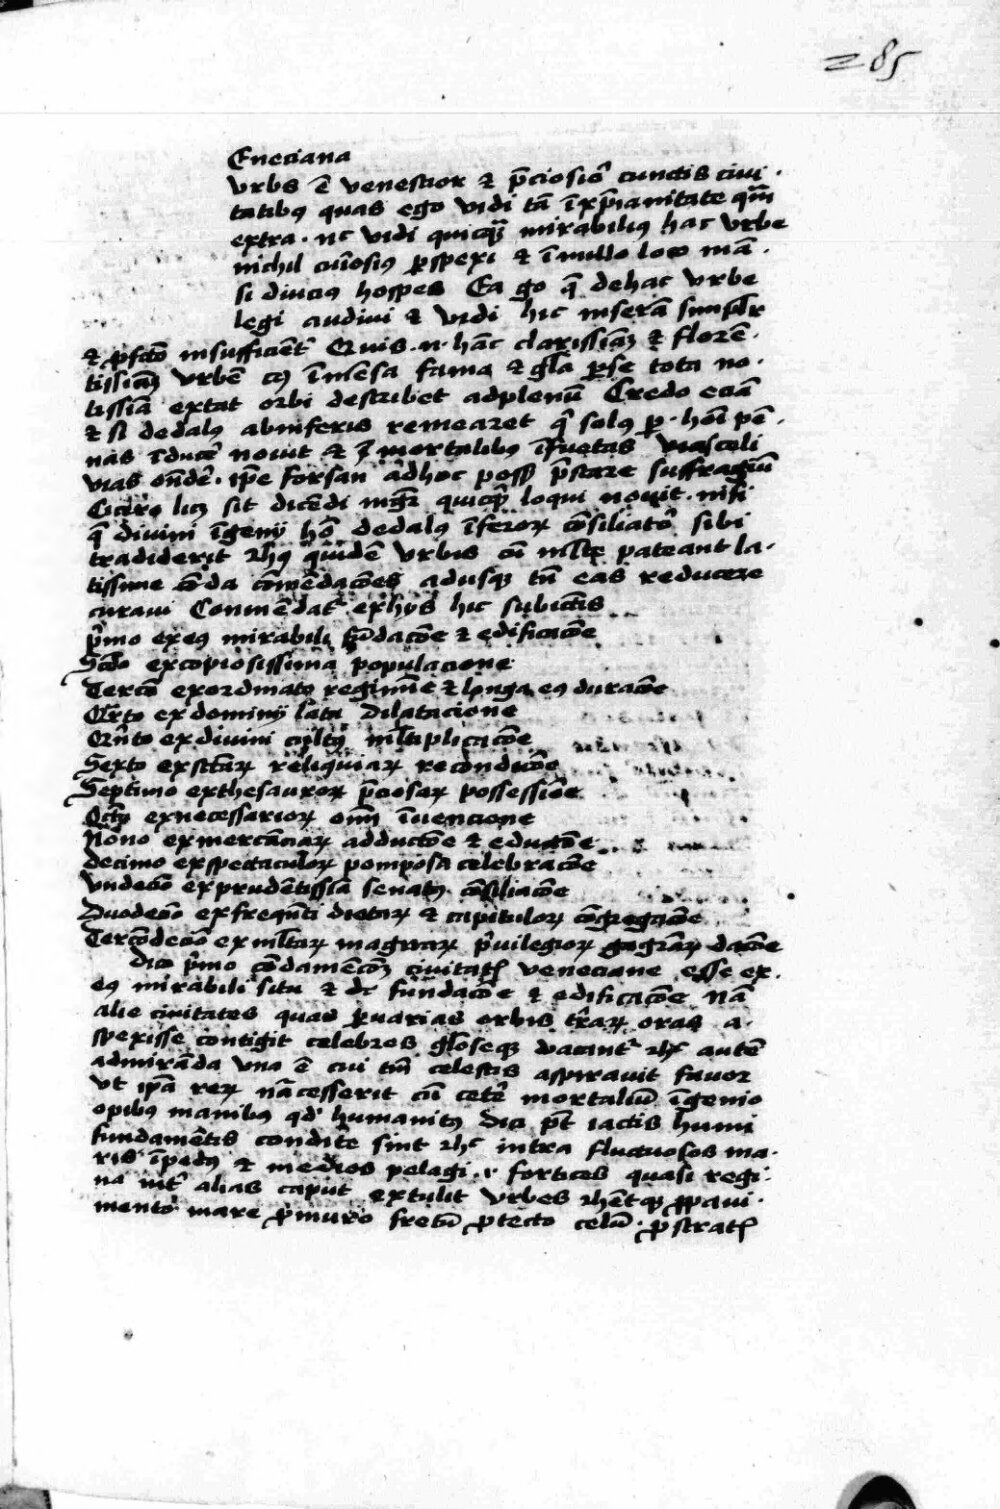 285
Eneciana
vrbs ē venestior & p̄ciosior̄ cunctis ciui .
tatibus quas ego vidi tā ī xp̄ianitate qm̄
extra . nc vidi quicq̄ mirabilius hac vrbe
nichil curiosius p̄spexi & ī nullo loco mā .
si diucius hospes Ea go q̄ de hac vrbe
legi audiui & vidi hic inserā simplr
& p̄fcō insufficient̄ Quis . n . hāc clarissimā & florē .
tissimā vrbē cū īmēsa fama & glā p̄ se tota no .
tissiā extat orbi describet ad plenū Credo eciā
& si dedalus ab inferis remearet q̄ solus p̄ . hoī pē .
nas īduce nouit & mortalibus īsuetas vias celi
vias ondē . ip̄e forsan adhoc posset p̄stare suffragiū
Cicero licet sit dicēdi mgr̄ quicq̄ loqui nouit . nisi
q̄ diuini īgenij hō dedalus īferorum cōsiliator̄ sibi
tradiderit rhus quidē vrbis cū mlte pateant la .
tissime cōdā cōmēdacōes adusque tn̄ eas reducere
curaui Commēdat̄ ex hijs hic subiectis
p̄mo ex eius mirabili fūdacōe & edificacōe
Scdō ex copiosissima populacione
Tercō ex ordinato regimīe & longa eius duracōe
Qr̄to ex dominij lata dilatacione
Qn̄to ex diuini cultus mltiplicacōe
Sexto ex sctārum reliquiarum recondicōe
Septimo ex thesaurorum p̄ciosarum possessiōe
Octō ex necessariorum om̄i īuencione
Nono ex mercāciarum adductōe & eductōe
decimo ex spectaculorum pomposa celebracōe
vndecīo ex prudētissīa senatus cōsiliacōe
Duodecīo ex freqn̄ti dietarum & capitulorum cōgregacōe
Tercōdecīo ex mltārum magnarum p̄uilegiorum gr̄arum dacōe
Dico p̄mo cōdamēcōem ciuitatis veneciane esse ex .
eius mirabili situ & de fūndacōe & edificacōe Nā
alie ciuitates quas p̄ varias orbis tr̄arum oras a .
spexisse contigit celebres glōseque dicant̄ rhc autē
admirāda vna ē cui tn̄ celestis aspirauit fauor
vt ip̄ā rerum nā cesserit cū ceter̄ mortaliū īgenio
opibus manibus qd̄ humanitus dici p̄t iactis humi
fundamētis condite sint rhc intra fluctuosos ma .
ris īpetus & medios pelagi . vortices quasi regi .
na int̄ alias caput extulit vrbes rhētque p̄ paui .
mento mare p̄ muro fretū p̄ tecto celū . p̄stratis